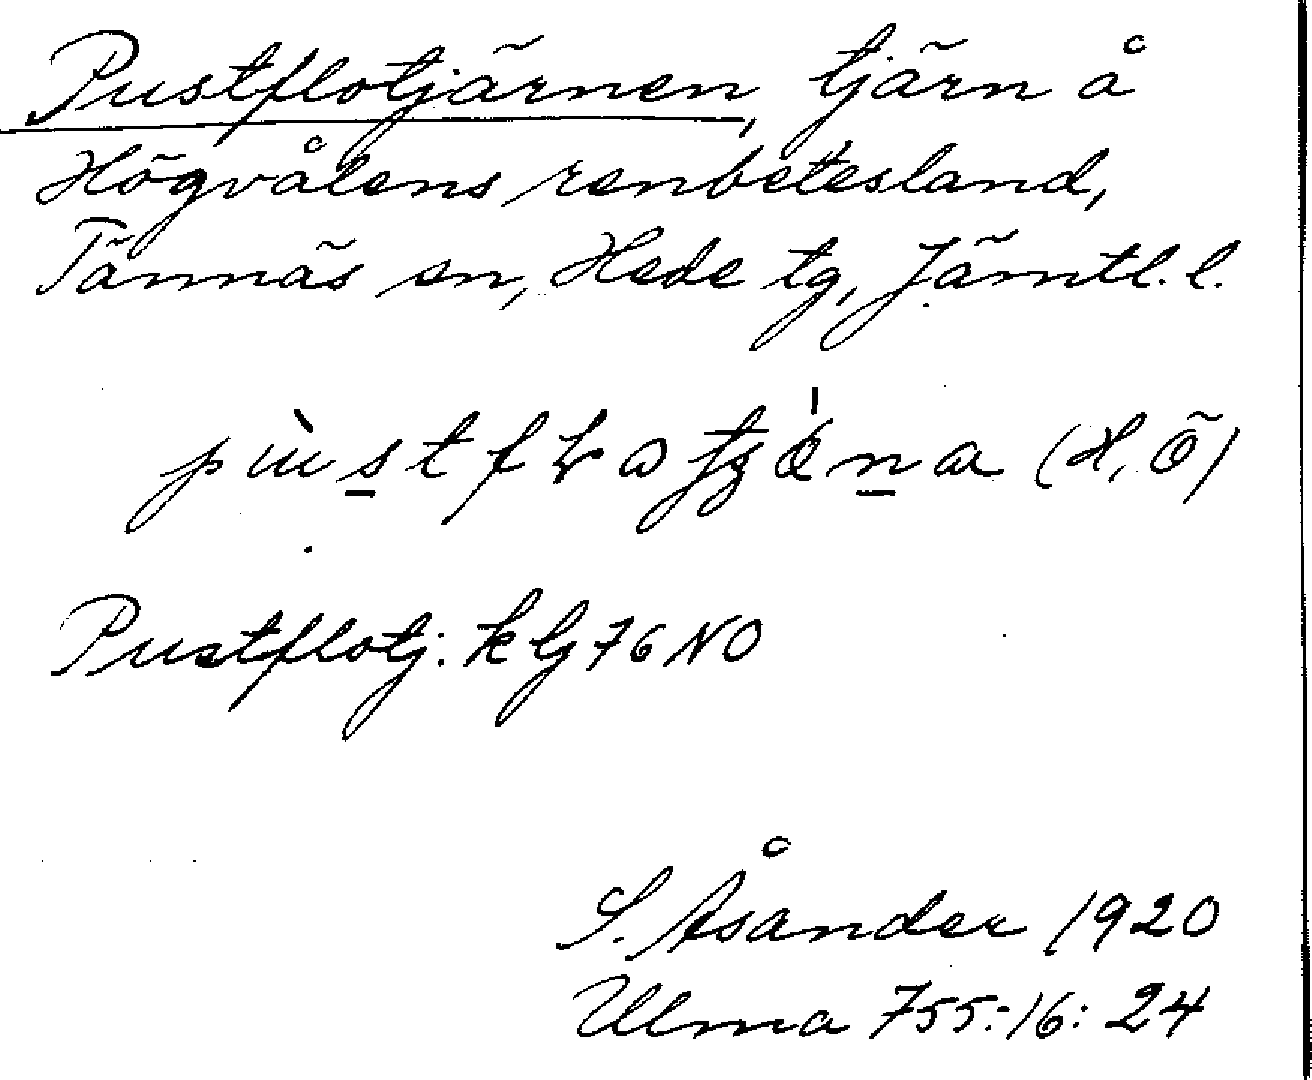 Pustflotjärnen, tjärn å
Högvålens renbetesland,
Tännäs sn, Hede tg, Jämtl. l.
(H, Ö)
Pustflotj. kbg 76 NO
S. Åsander 1920
Ulma 755:16:24